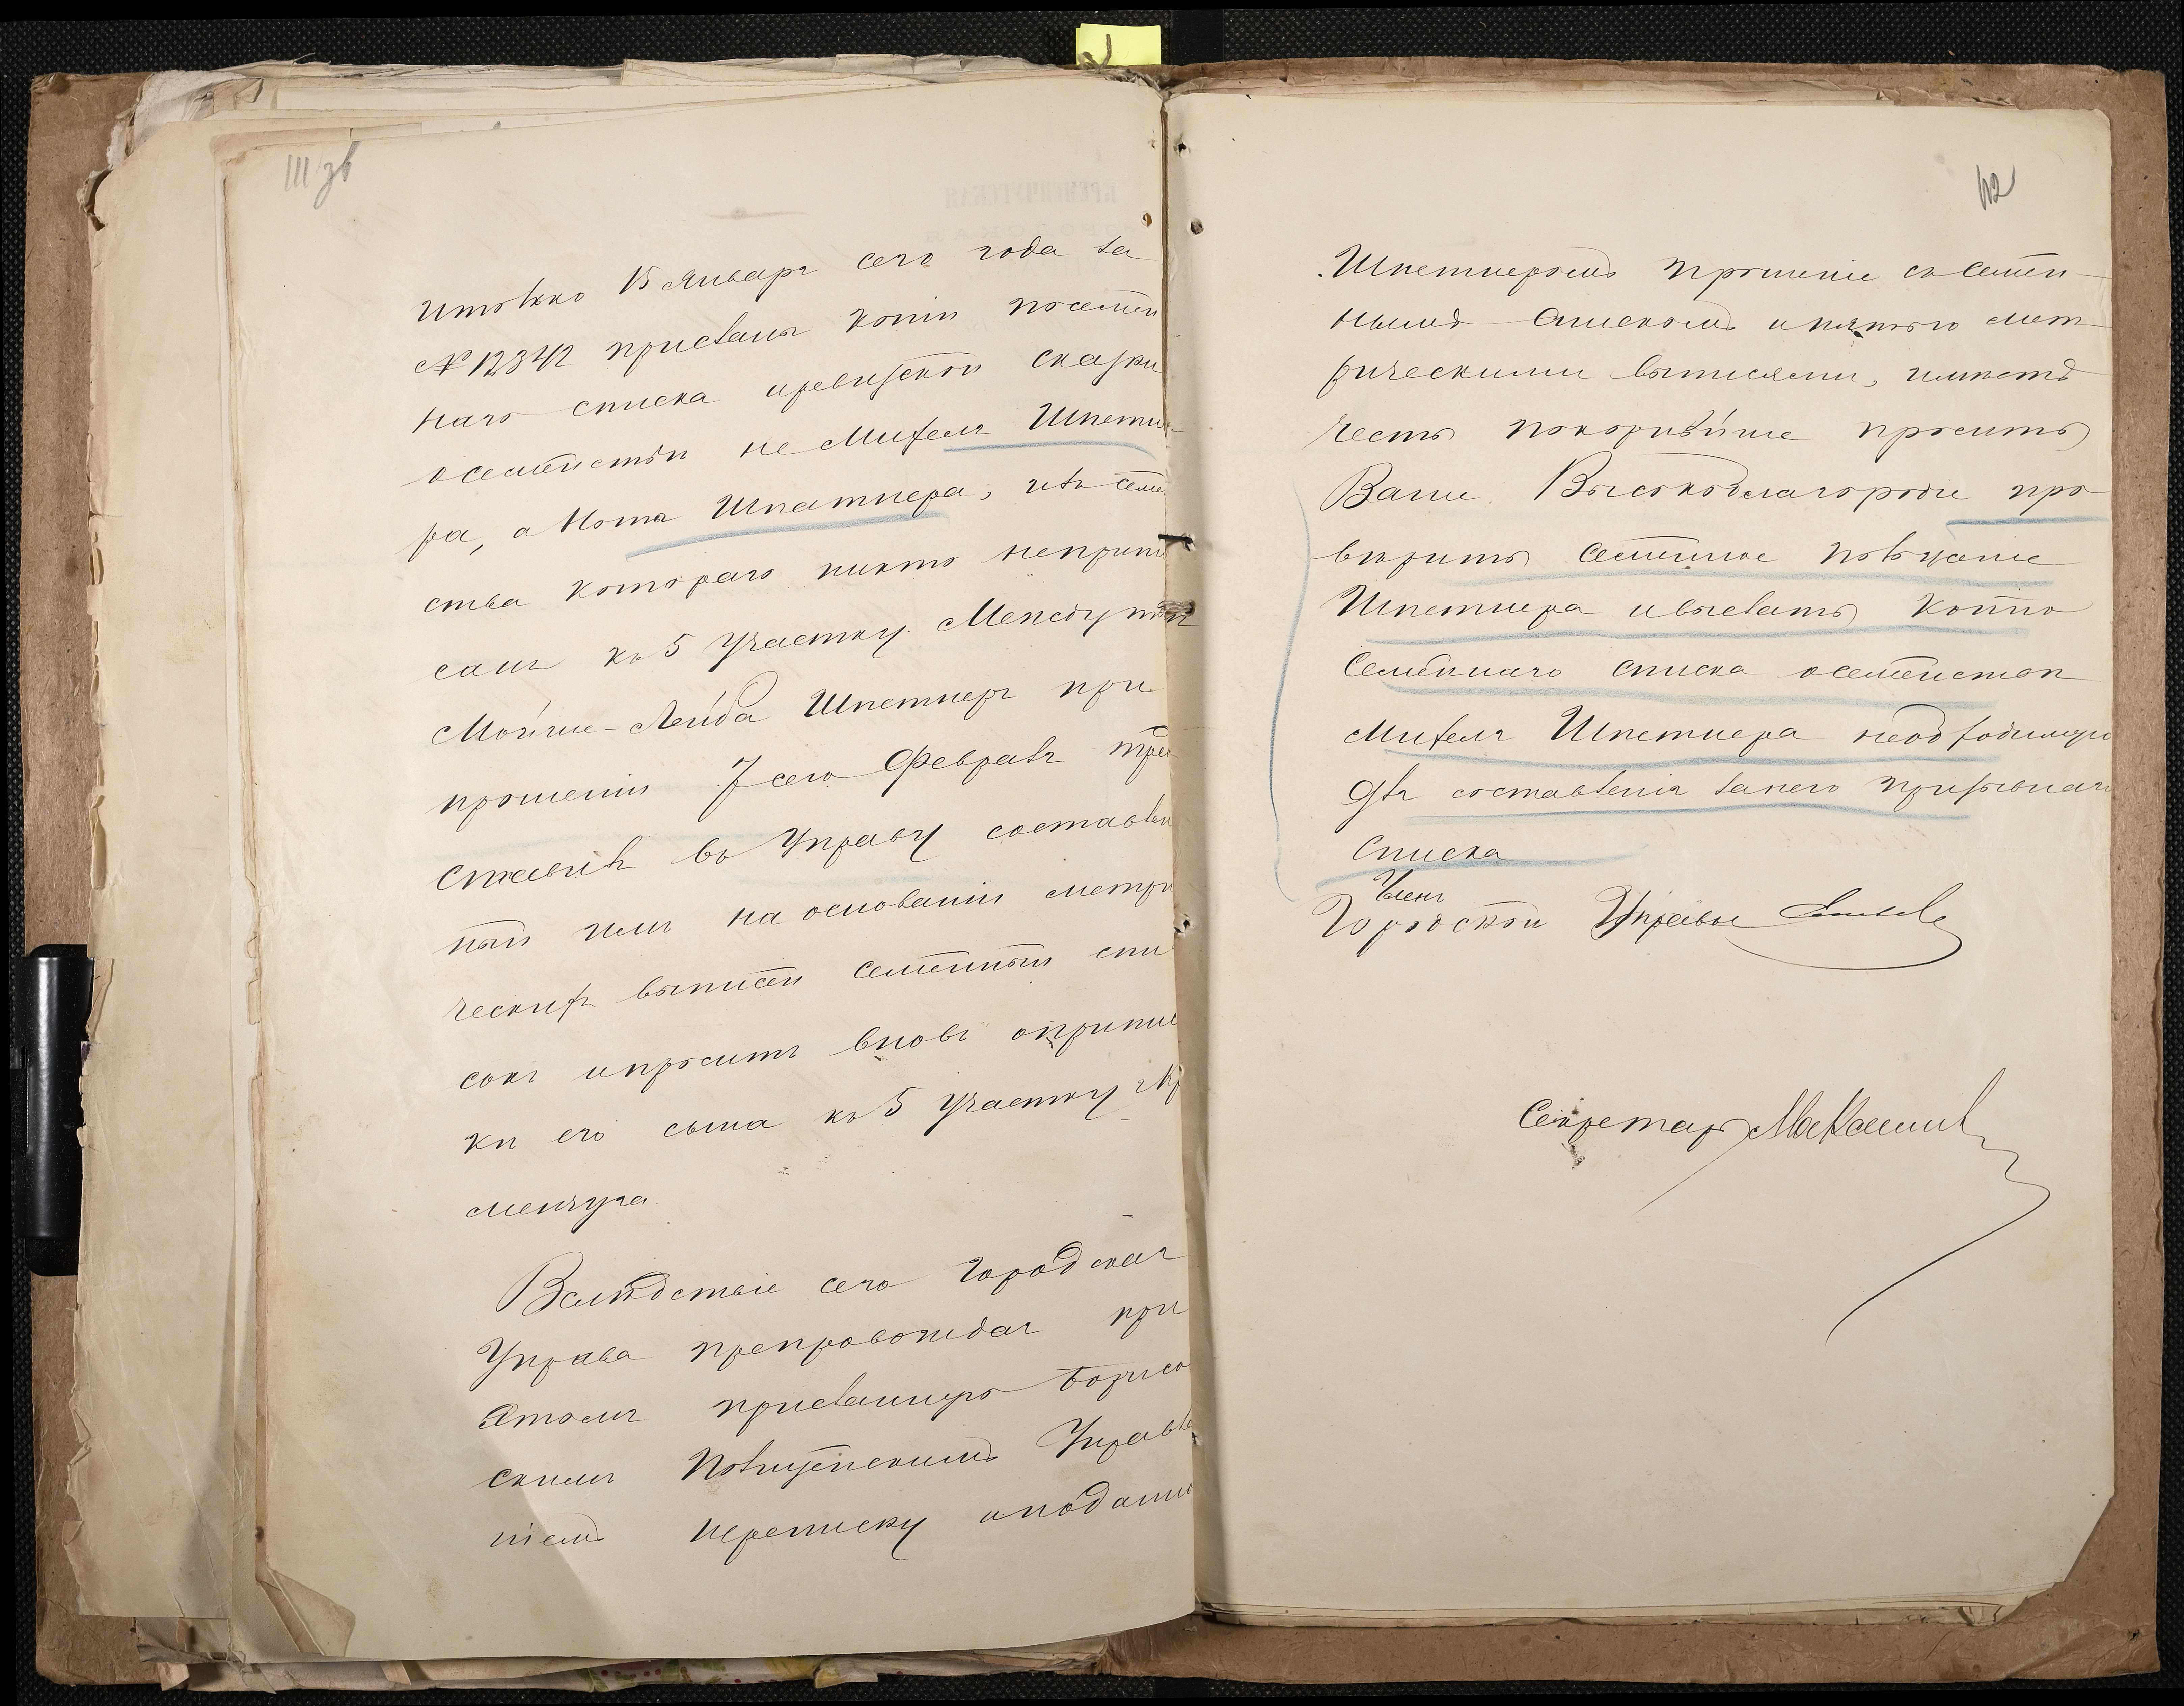 111 зв
и только 15 Января сего года за
№ 12342 присланы копіи посемей
наго списка и ревизской сказки
о семействѣ не Михеля Шпетне
ра, а Нота Шпатнера, изъ семей
ства котораго никто не припи
санъ къ 5 участку. Между тѣмъ
Мойше-Лейба Шпетнеръ при
прошеніи 7 сего Февраля пред
ставилъ въ Управу составлен
ный имъ на основаніи метри
ческихъ выписей семейный спи
сокъ и проситъ вновь о припис
кѣ его сына къ 5 участку г. Кре
менчуга.
Вслѣдствіе сего Городская
Управа препровождая при
этомъ присланную Борисов
скимъ Полицейскимъ Управле
ніемъ переписку и поданное
112
Шпетнеромъ прошеніе съ семей
нымъ спискомъ и пятью мет
рическими выписями, имѣетъ
честь покорнѣйше просить
Ваше Высокоблагородіе про
вѣрить семейное положеніе
Шпетнера и выслать копію
Семейнаго списка о семействѣ
Михеля Шпетнера необходимую
для составленія за него призывнаго
списка
Членъ
Городской Управы
Секретарь